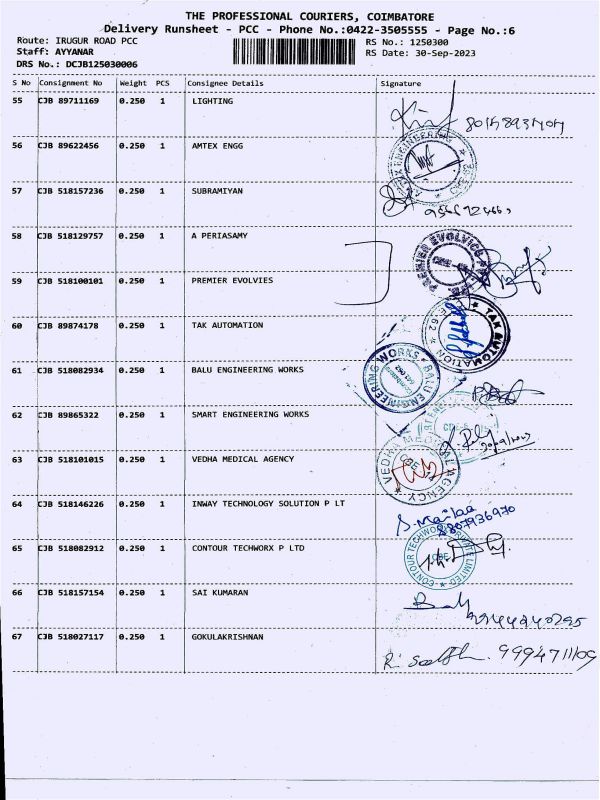 THE PROFESSIONAL COURIERS, COIMBATORE
Delivery Runsheet - PCC - Phone No.:0422-3505555 - Page No.:6
Route: IRUGUR ROAD PCC
RS No.: 1250300
Staff: AYYANAR
RS Date: 30-Sep-2023
DRS No.: DCJB125030006
S No Consignment No Weight PCS Consignee Details Signature
55 CJB 89711169 0.250 1 LIGHTING
56 CJB 89622456 0.250 1 AMTEX ENGG
57 CJB 518157236 0.250 1 SUBRAMIYAN
58 CJB 518129757 0.250 1 A PERIASAMY
PREMIER EVOLVICS
59 CJB 518100101 0.250 1 PREMIER EVOLVIES
60 CJB 89874178 0.250 1 TAK AUTOMATION
TAK AUTOMATION
61 CJB 518082934 0.250 1 BALU ENGINEERING WORKS
BALU ENGINEERING WORKS
62 CJB 89865322 0.250 1 SMART ENGINEERING WORKS
63 CJB 518101015 0.250 1 VEDHA MEDICAL AGENCY
VEDHA MEDICAL AGENCY
64 CJB 518146226 0.250 1 INWAY TECHNOLOGY SOLUTION P LT
8807936970
65 CJB 518082912 0.250 1 CONTOUR TECHWORX P LTD
CONTOUR TECHWORX PRIVATE LIMITED
66 CJB 518157154 0.250 1 SAI KUMARAN
67 CJB 518027117 0.250 1 GOKULAKRISHNAN
9994711109